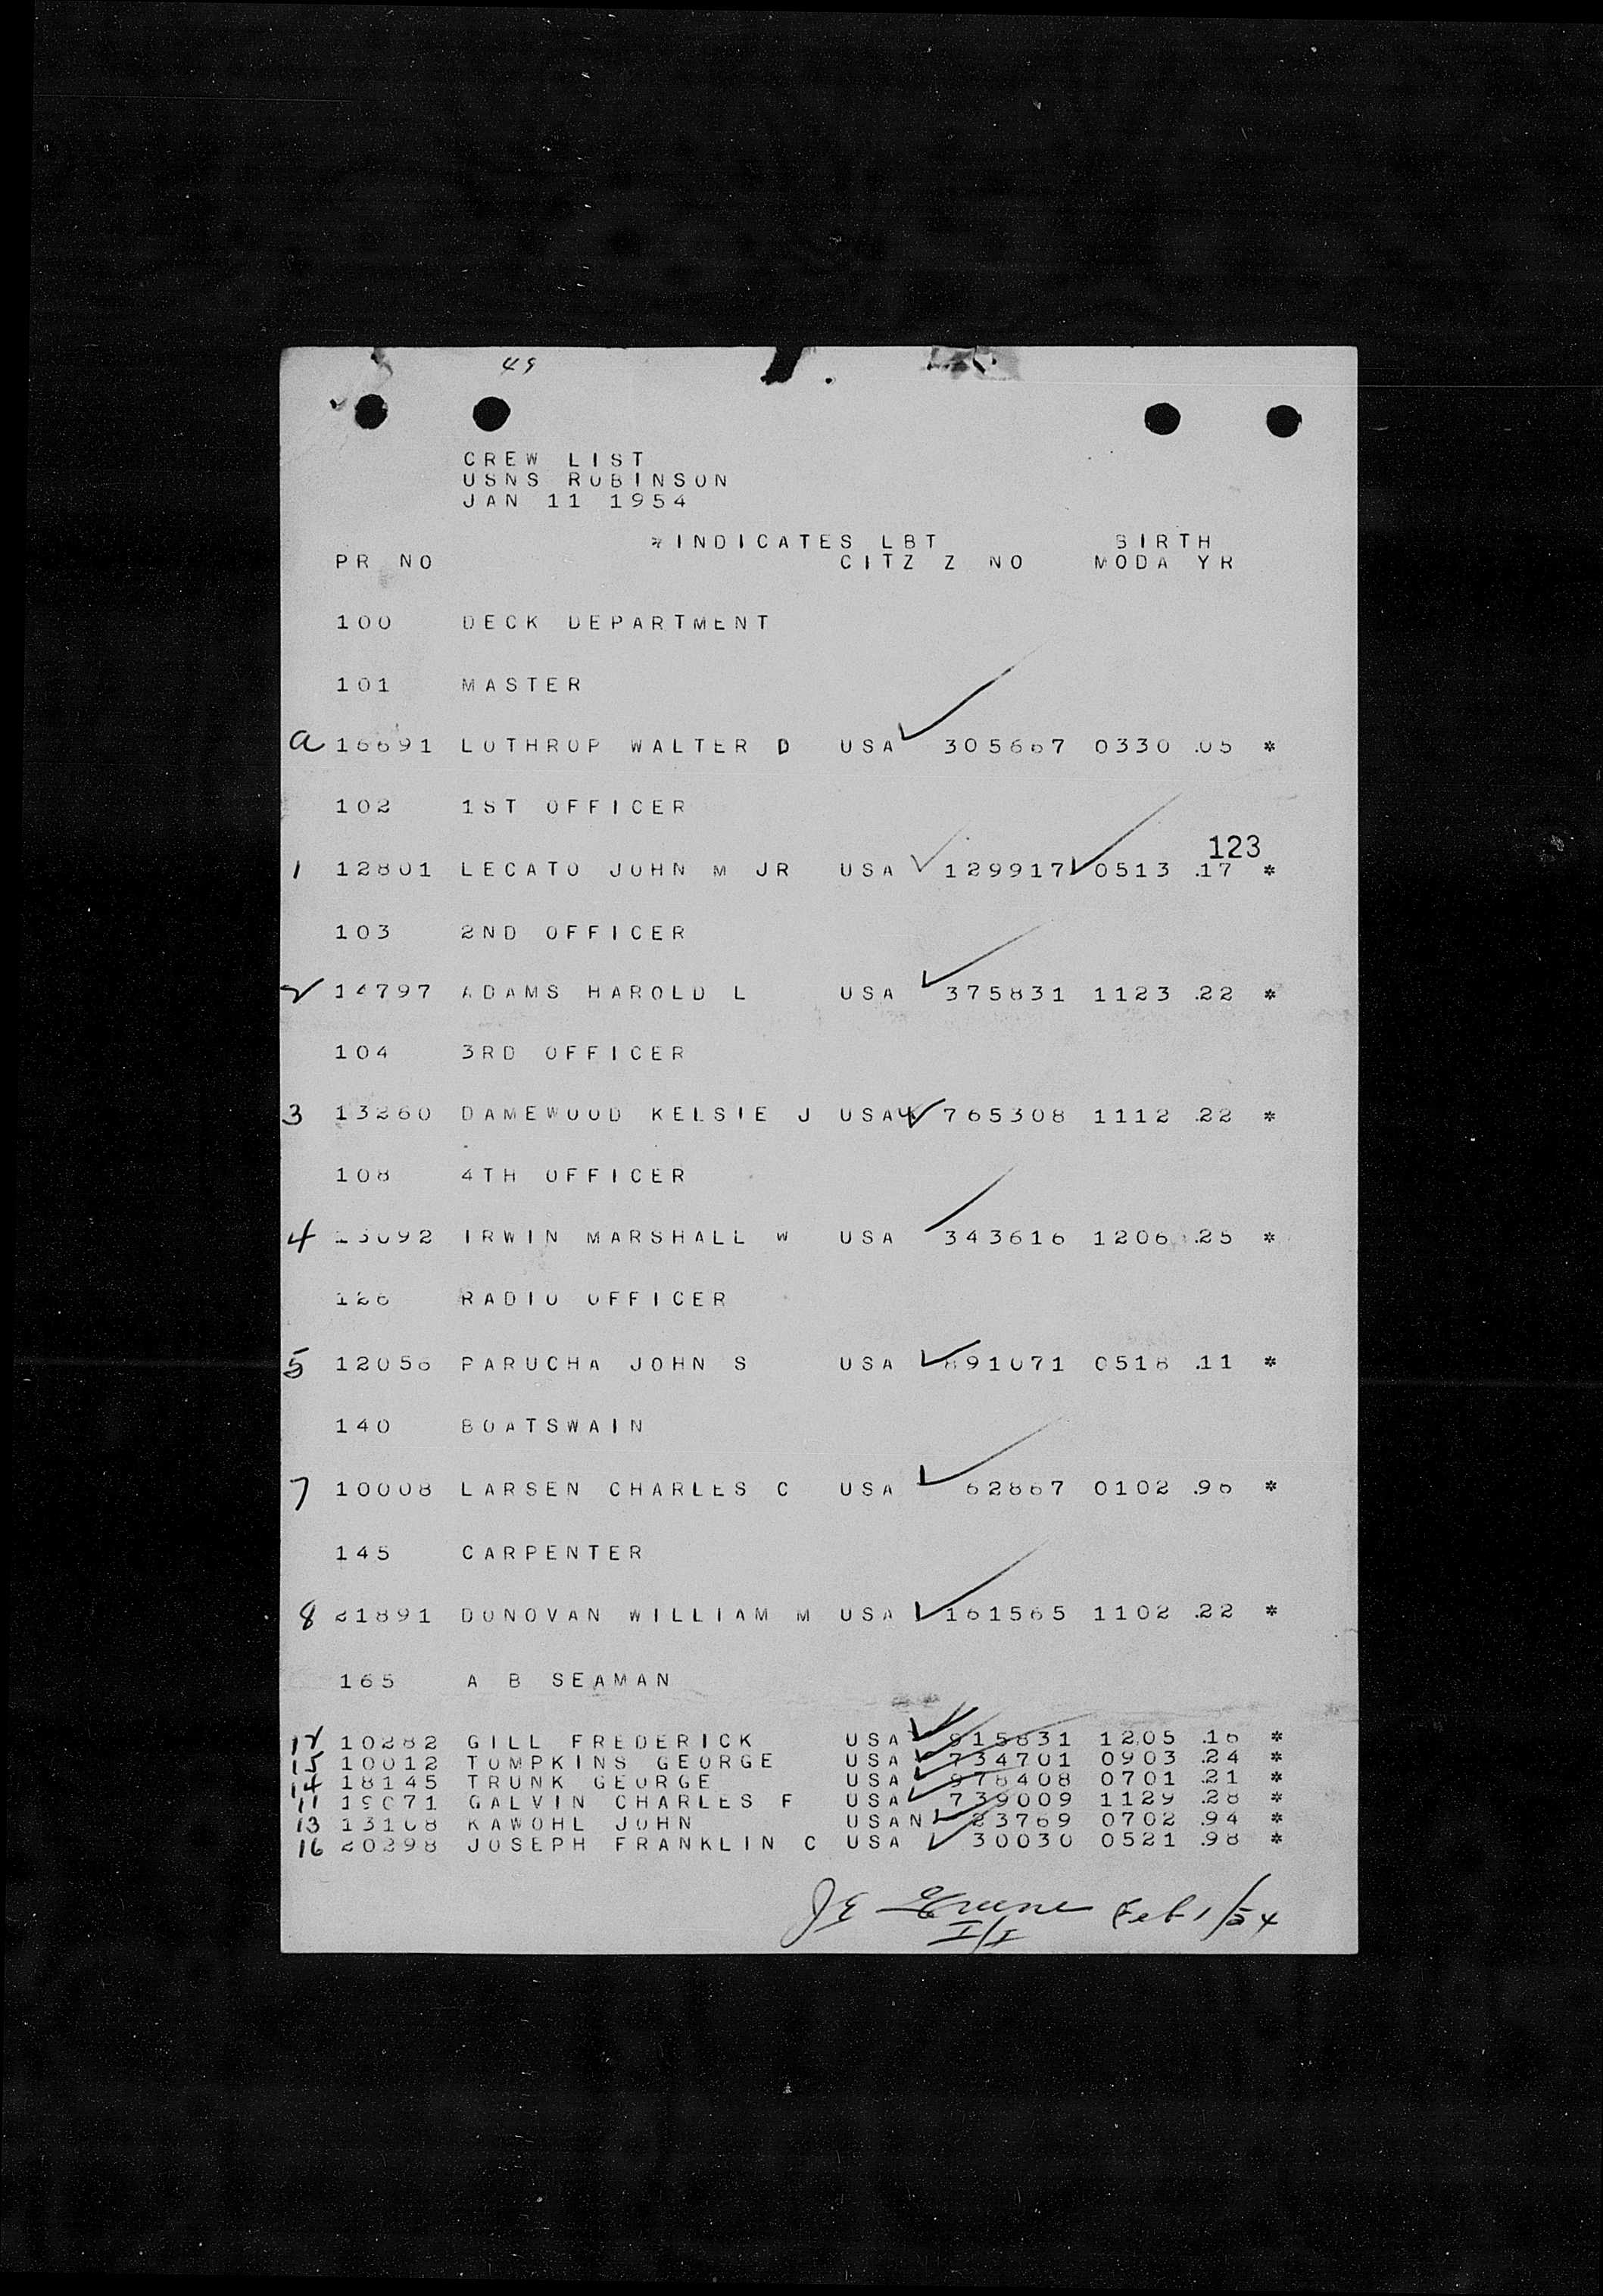 49
CREW LIST
USNS ROBINSON
JAN 11 1954
*INDICATES LBT BIRTH
PR NO CITZ Z NO MODA YR
100 DECK DEPARTMENT
101 MASTER
a 16691 LOTHROP WALTER D USA 305667 0330 .05 *
102 1ST OFFICER
123
1 12801 LECATO JOHN M JR USA 129917 0513 .17 *
103 2ND OFFICER
2 14797 ADAMS HAROLD L USA 375831 1123 .22 *
104 3RD OFFICER
3 13260 DAMEWOOD KELSIE J USA 765308 1112 .22 *
108 4TH OFFICER
4 13092 IRWIN MARSHALL W USA 343616 1206 .25 *
126 RADIO OFFICER
5 12056 PARUCHA JOHN S USA 891071 0518 .11 *
140 BOATSWAIN
7 10008 LARSEN CHARLES C USA 62867 0102 .96 *
145 CARPENTER
8 21891 DONOVAN WILLIAM M USA 161565 1102 .22 *
165 A B SEAMAN
12 10282 GILL FREDERICK USA 915831 1205 .16 *
15 10012 TOMPKINS GEORGE USA 734701 0903 .24 *
14 18145 TRUNK GEORGE USA 978408 0701 .21 *
11 19071 GALVIN CHARLES F USA 739009 1129 .28 *
13 13108 KAWOHL JOHN USAN 23769 0702 .94 *
16 20298 JOSEPH FRANKLIN C USA 30030 0521 .98 *
JE Greene Feb 1/54
I/I